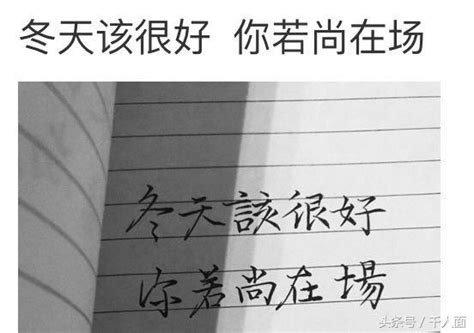 冬天该很好 你若尚在场
冬天該很好
你若尚在場
头条号/千人面